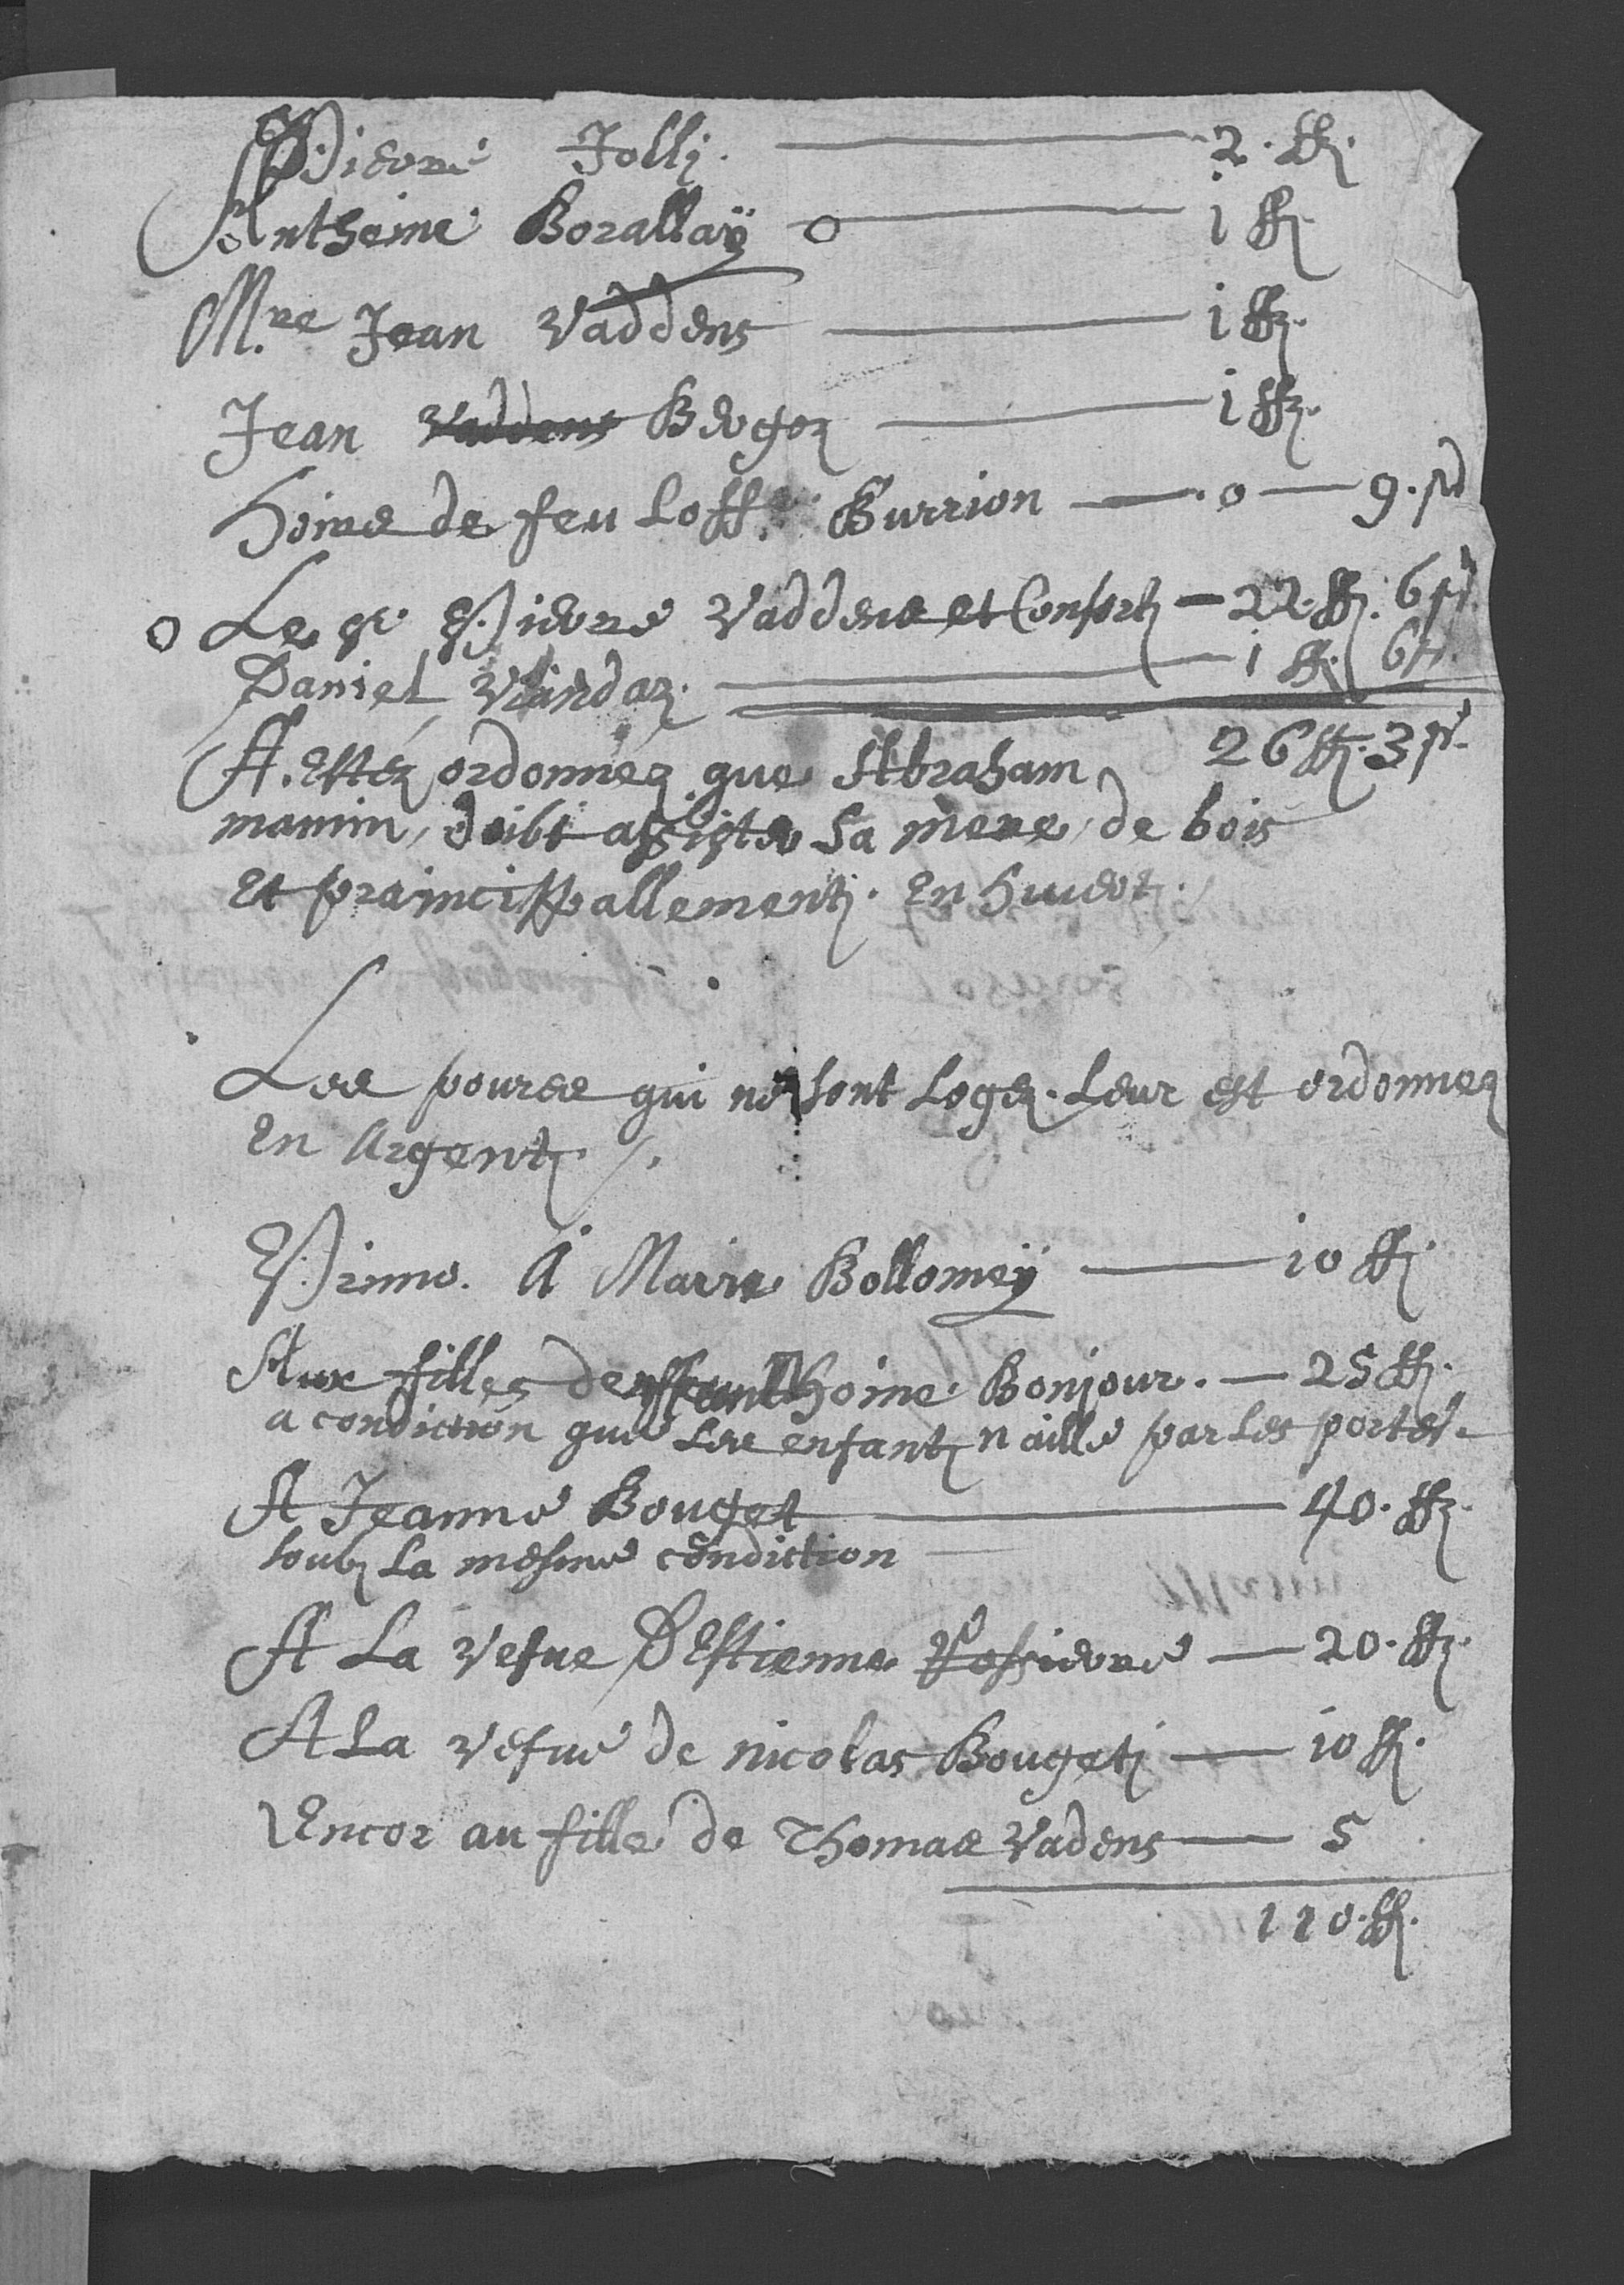 Pierre Jolli. 2. ff.
Anthoine Borallaÿ o 1 ff.
M.re Jean Vaddens 1 ff.
Jean Vaddens Berger 1 ff.
Hoirs de feu Loff. Burrion . o 9. sd
o Le sr. Pierre Vaddens et Consorts 22. ff. 6 sd.
Daniel 1 ff. 6 s.
26 ff. 3 s.
A. Estez ordonnez que Abraham
mamin, doibt assister sa mere, de bois
Et praincippallement. En hiuert.
Les poures qui ne sont Logez. Leur est ordonnez
En Argent /.
Primo. A Marie Bollomeÿ 10 ff.
Aux filles de feu Thoine Bonjour. 25 ff.
a condiction que Les enfants n aille par Les portes.
A Jeanne Bouget 40. ff.
soubz La mesme condiction
A La Vefue D Estienne 20. ff.
A La Vefue de nicolas Bouget 10 ff.
Encor au fille de Thomas Vadens 5
110. ff.